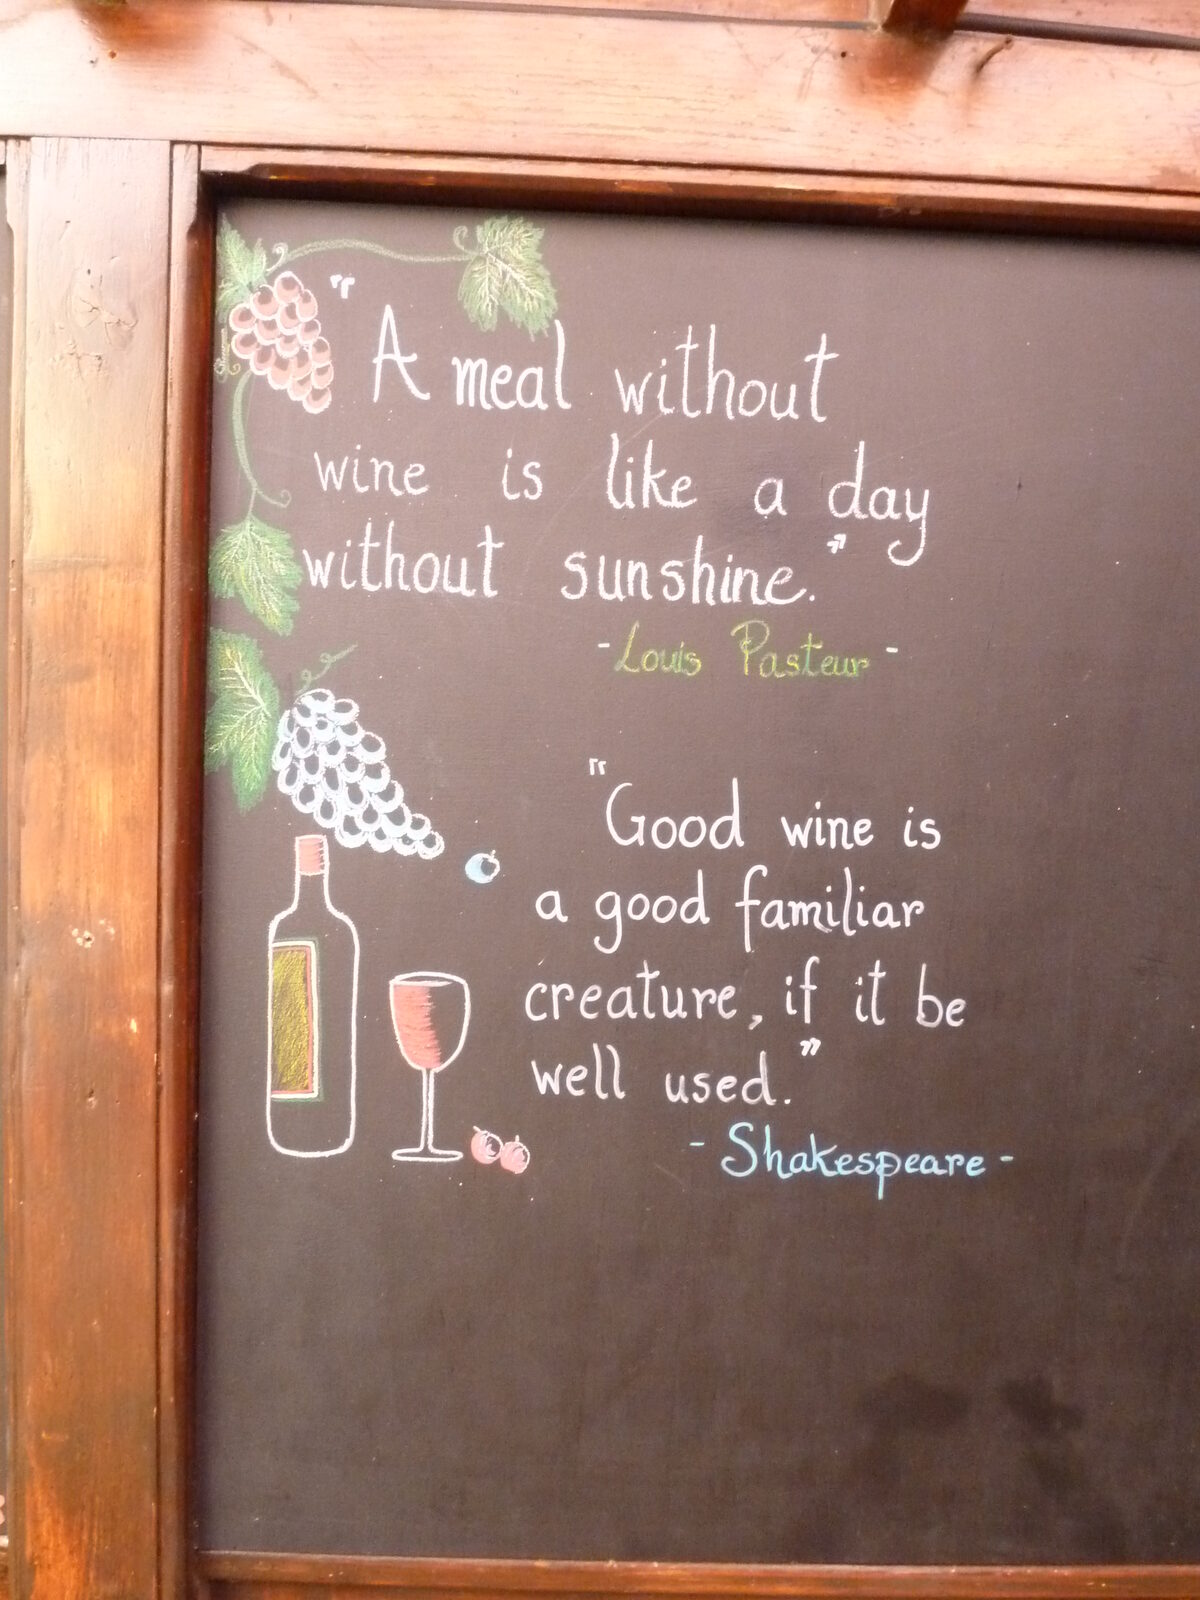 "A meal without
wine is like a day
without sunshine."
-Louis Pasteur-
"Good wine is
a good familiar
creature, if it be
well used."
-Shakespeare-